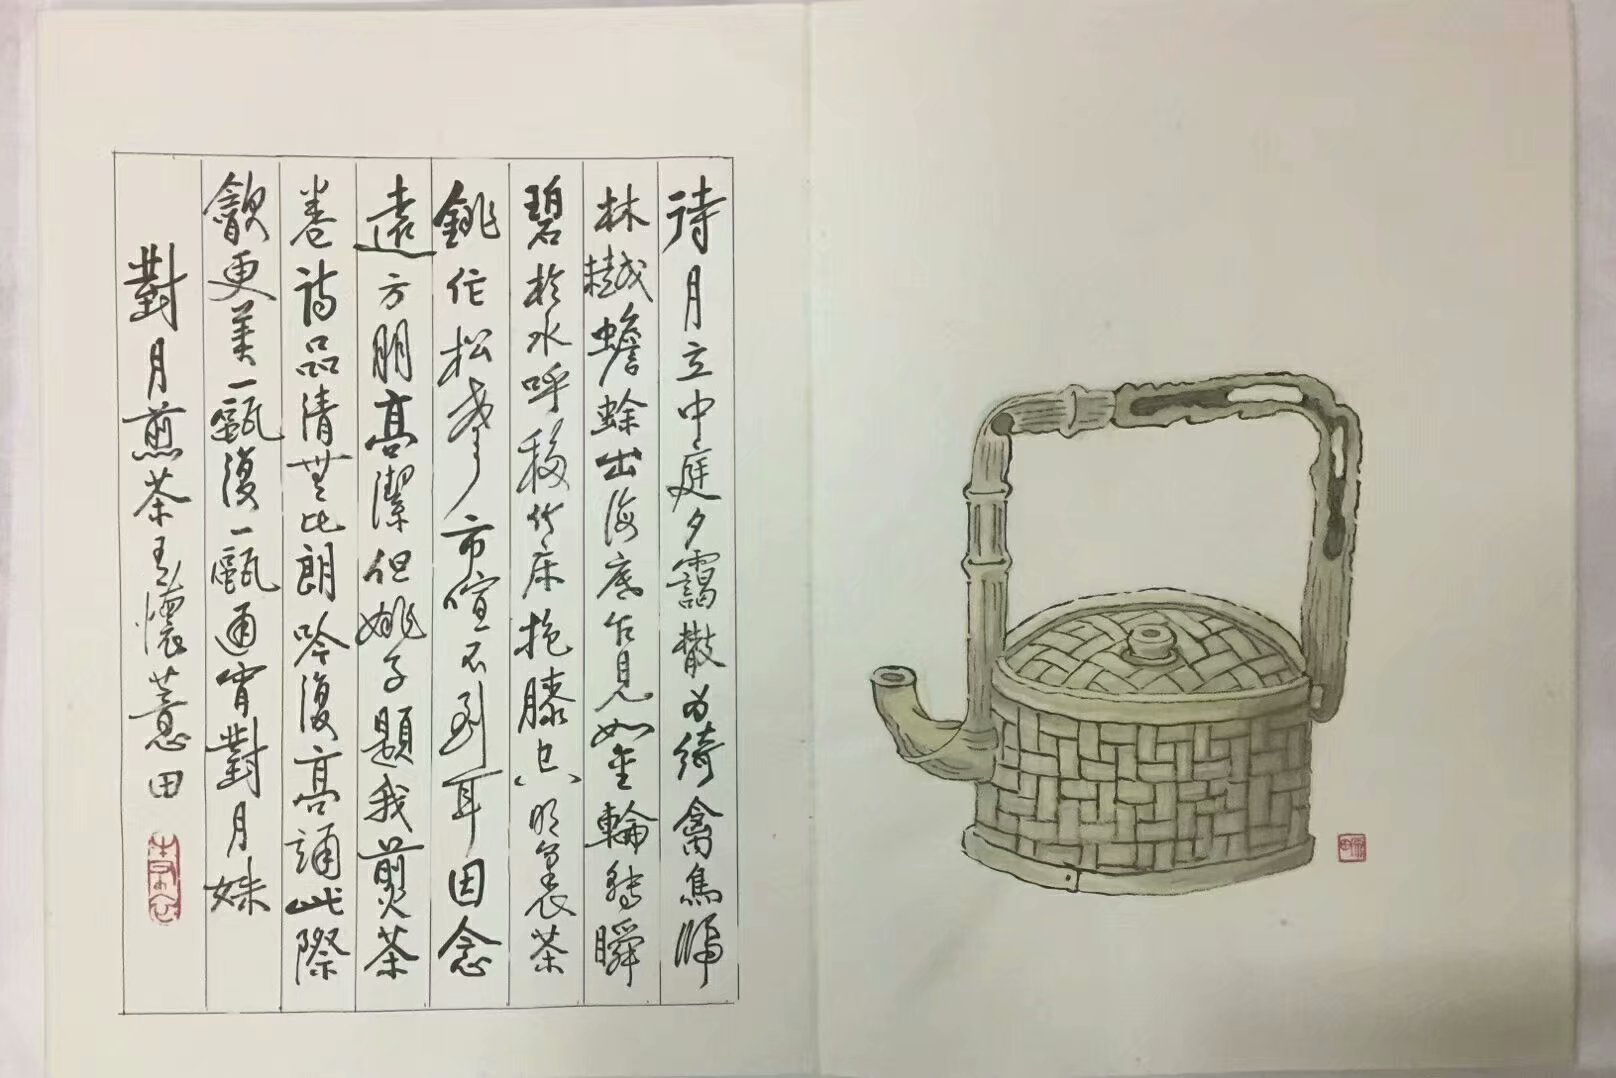 待月立中庭夕靄散為綺禽鳥歸
林樾蟾蜍出海底乍見如金輪轉瞬
碧於水呼移竹床抱膝明裏茶
銚作松聲市喧不到耳因念
遠方朋高潔但姚子題我煎茶
卷詩品清無比朗吟復高誦此際
㱃更美一甌復一甌通宵對月姝
對月煎茶有懷薏田